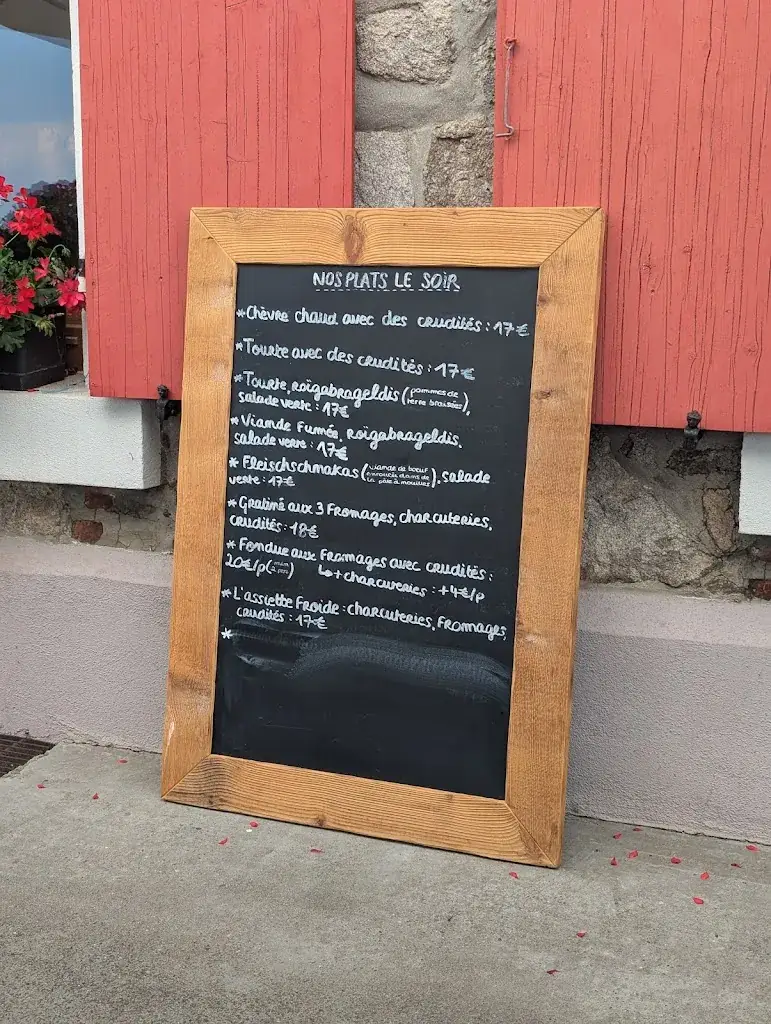 NOS PLATS LE SOIR
*Chèvre chaud avec des crudités : 17€
*Tourte avec des crudités : 17€
*Tourte, roïgabrageldis (pommes de terre braisées),
salade verte : 17€
*Viande Fumée, roïgabrageldis,
salade verte : 17€
*Fleischschnakas (viande de boeuf enroulée dans de la pâte à nouilles), salade
verte : 17€
*Gratiné aux 3 Fromages, charcuteries,
crudités : 18€
*Fondue aux Fromages avec crudités :
20€/p (mim. 2 pers) ↳ + charcuteries : +4€/p
*L'assiette Froide : charcuteries, Fromages,
crudités : 17€
*